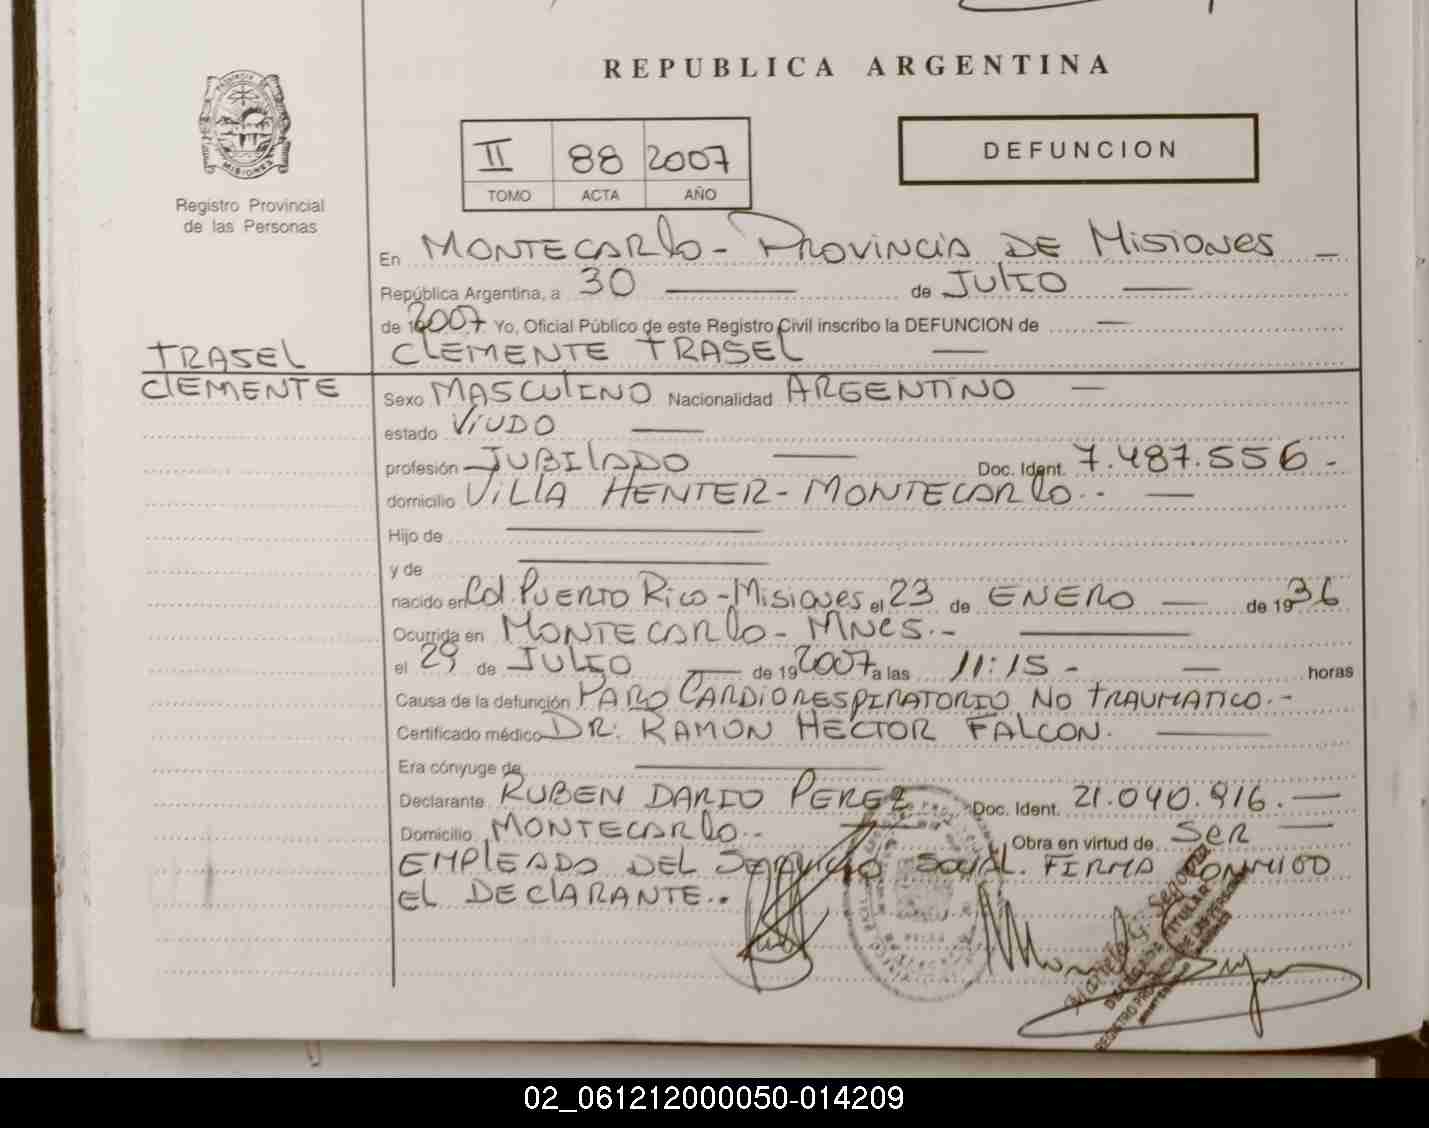 REPUBLICA ARGENTINA
MISIONES
Registro Provincial
de las Personas
II 88 2007
TOMO ACTA AÑO
DEFUNCION
En MONTECARLO - PROVINCIA DE MISIONES -
República Argentina, a 30 — de JULIO —
de 2007 Yo, Oficial Público de este Registro Civil inscribo la DEFUNCION de —
CLEMENTE TRASEL —
TRASEL
CLEMENTE
Sexo MASCULINO Nacionalidad ARGENTINO —
estado VIUDO —
profesión JUBILADO — Doc. Ident. 7.487.556 -
domicilio VILLA HENTER - MONTECARLO.- —
Hijo de —
y de —
nacido en Col. PUERTO RICO - MISIONES el 23 de ENERO — de 1936
Ocurrida en MONTECARLO - MNES.- —
el 29 de JULIO — de 19 2007 a las 11:15 - — horas
Causa de la defunción PARO CARDIORESPIRATORIO NO TRAUMATICO.-
Certificado médico DR. RAMON HECTOR FALCON. —
Era cónyuge de —
Declarante RUBEN DARIO PEREZ Doc. Ident. 21.040.916. —
Domicilio MONTECARLO.- — Obra en virtud de SER —
EMPLEADO DEL SERVICIO SOCIAL. FIRMA CONMIGO
EL DECLARANTE..
02_061212000050-014209